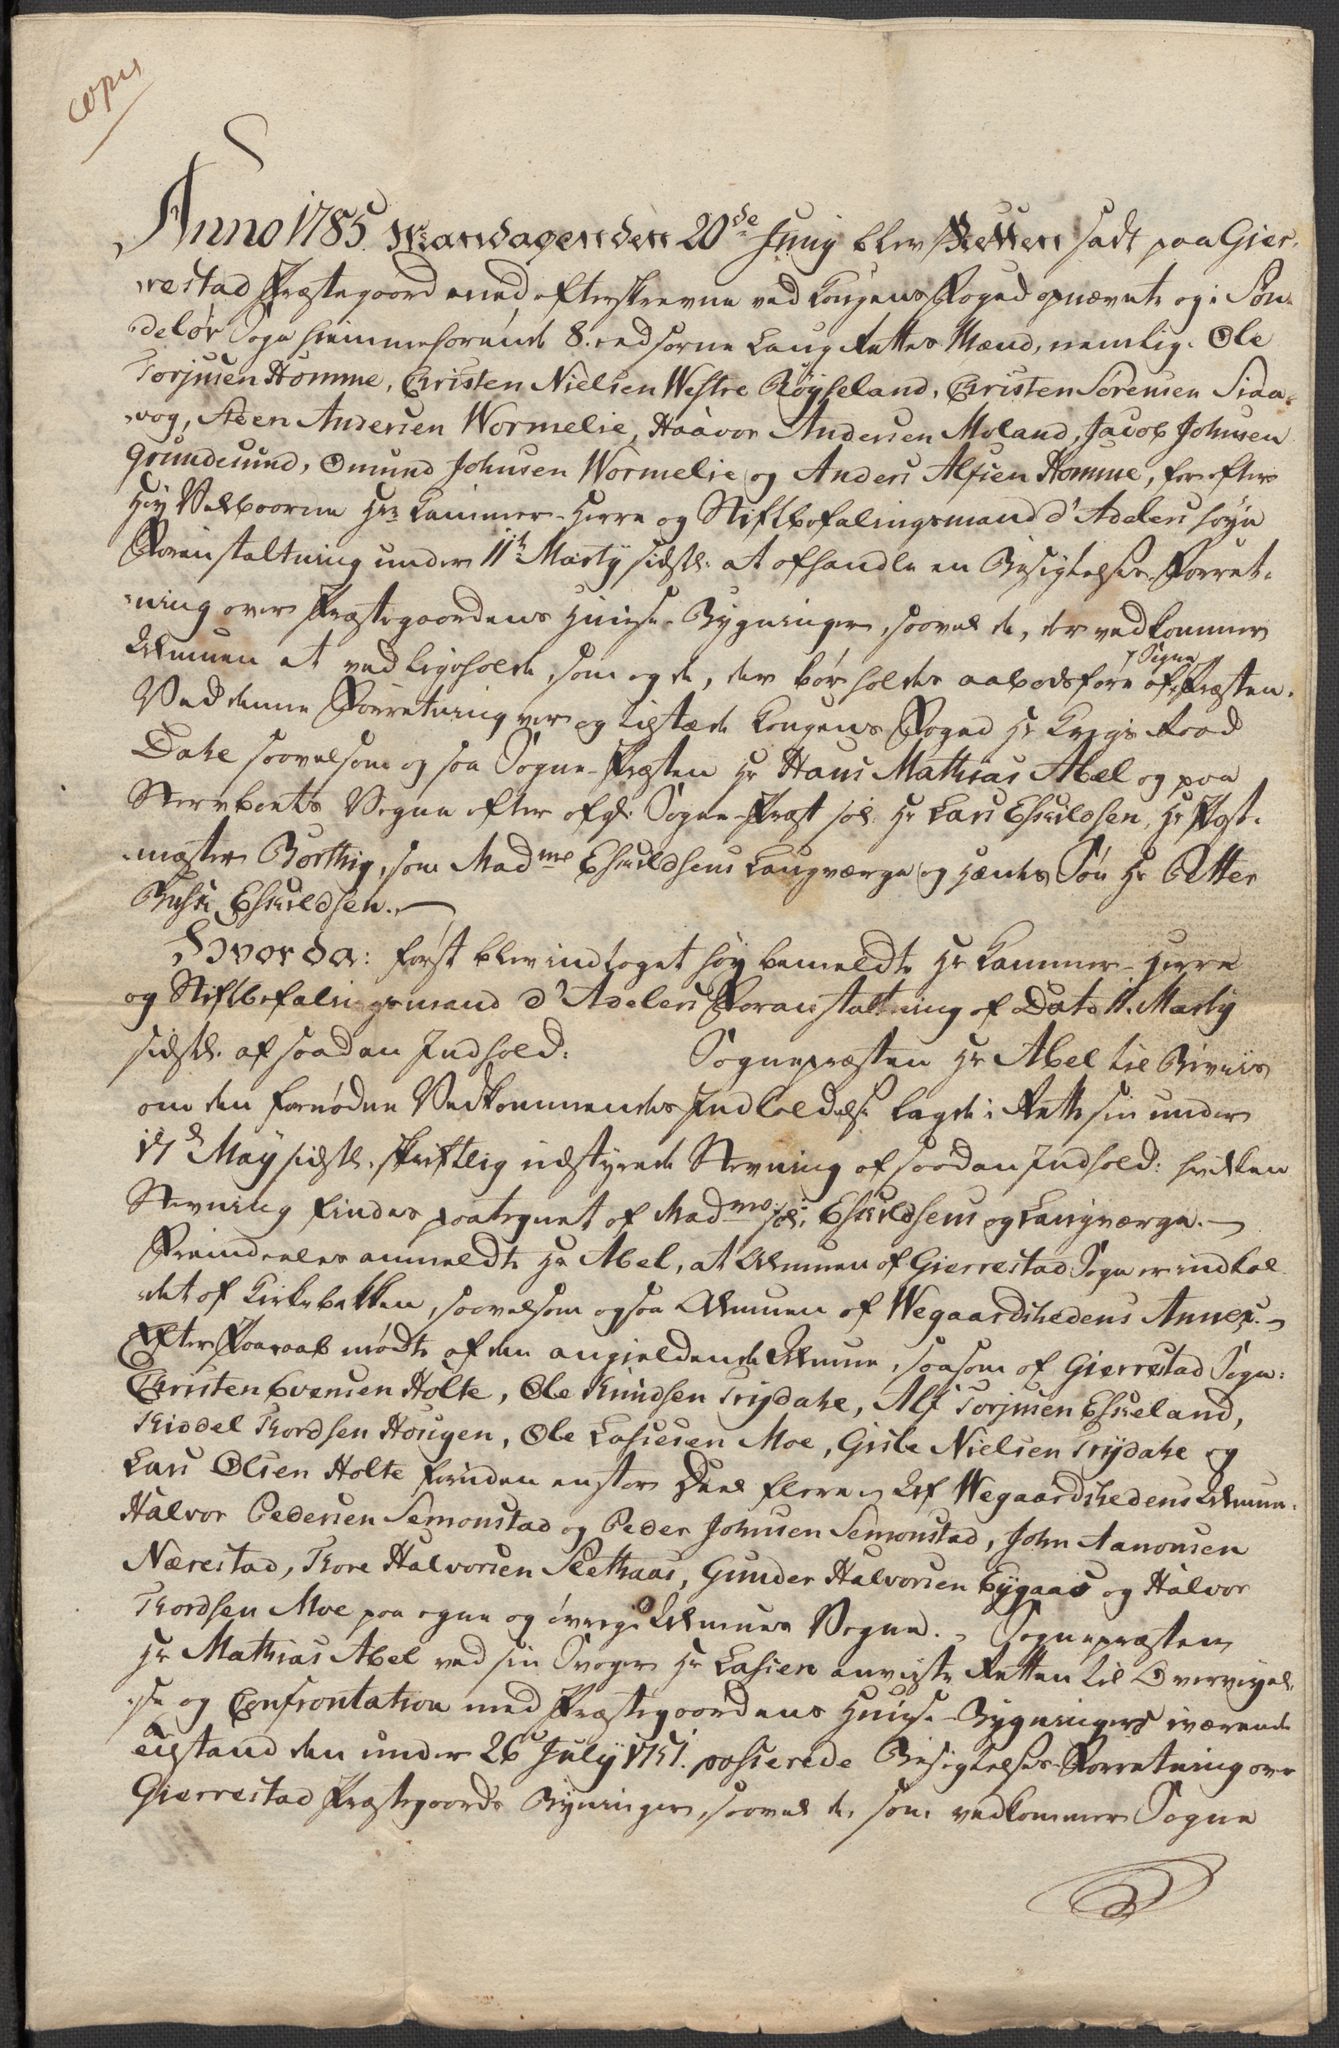 copie
Anno 1785. Mandagen den 20de Junij blev Retten sadt paa Gier-
restad Præstegaard med efterskrevne ved Kongens Foged opnævnte og i Søn-
deløv Sogn hiemmehørende 8. eedsorne Laug Rettes Mænd, nemlig: Ole
Torjusen Homme, Christen Nielsen Westre Røyseland, Christen Sørensen Siaa-
vog, Aden Andersen Wormelie, Haavor Andersen Moland, Jacob Johnsen
Grundesund, Omund Johnsen Wormelie og Anders Alfsen Homme, for efter
Høy Velbaarne Hr. Kammer-Herre og Stiftbefalingsmand d'Adelers høye
Foranstaltning under 11te Martij sidstl: at afhandle en Besigtelses-Forret-
ning over Præstegaardens Huuse-Bygninger, saavel de, der vedkommer
Almuen at vedligeholde, som og de, der bør holdes aabodsfore af Sogne Præsten.
Ved denne Forretning var og tilstæde Kongens Foged Hr Krigs Raad
Dahe saavelsom og saa Sogne-Præsten Hr Hans Mathias Abel og paa
Sterboets Vegne efter afgl: Sogne-Præst sal: Hr Lars Eskildsen, Hr Post-
mæster Borthig, som Madme Eskildsens Laugværge og hendes Søn Hr Petter
Eskildsen.
Hvorda: først blev indtaget høy bemeldte Hr Kammer-Herre
og Stiftbefalingsmand d'Adelers Foranstaltning af Dato 11. Martij
sidstl. af saadan Indhold: Sognepræsten Hr Abel til Beviis
om den fornødne Vedkommendes Indkaldelse lagde i Rette sin under
17de Maij sidstl. skriftlig udstyrede Stevning af saadan Indhold: hvilken
Stevning findes paategnet af Madme sal: Eskildsens og Laugværge.
Fremdeeles anmeldte Hr Abel, at Almuen af Gierrestad Sogn er indkal-
det af Kirkebakken, saavelsom ogsaa Almuen af Wegaardshedens Annex.
Efter Paaraab mødte af den angieldende Almue, saasom af Gierrestad Sogn:
Christen Evensen Holte, Ole Knudsen Trydahe, Alf Torjusen Eskeland,
Kiddel Tordsen Hougen, Ole Lassesen Moe, Gisle Nielsen Trydahe og
Lars Olsen Holte foruden en stor Deel flere, Af Wegaardshedens Almue:
Halvor Pedersen Semonstad og Peder Johnsen Semonstad, John Aanonsen
Nærestad, Tore Halvorsen Selhaas, Gunder Halvorsen Eygaas og Halvor
Tordsen Moe paa egne og øvrige Almues Vegne. Sognepræsten
Hr Mathias Abel ved sin Svoger Hr Lassen anviiste Retten til Overveyel-
se og Confrontation med Præstegaardens Huuse-Bygningers værende
Tilstand den under 26 Julij 1751. passerede Besigtelses-Forretning over
Gierrestad Præstegaards Bygninger, saavel de, som vedkommer Sogne